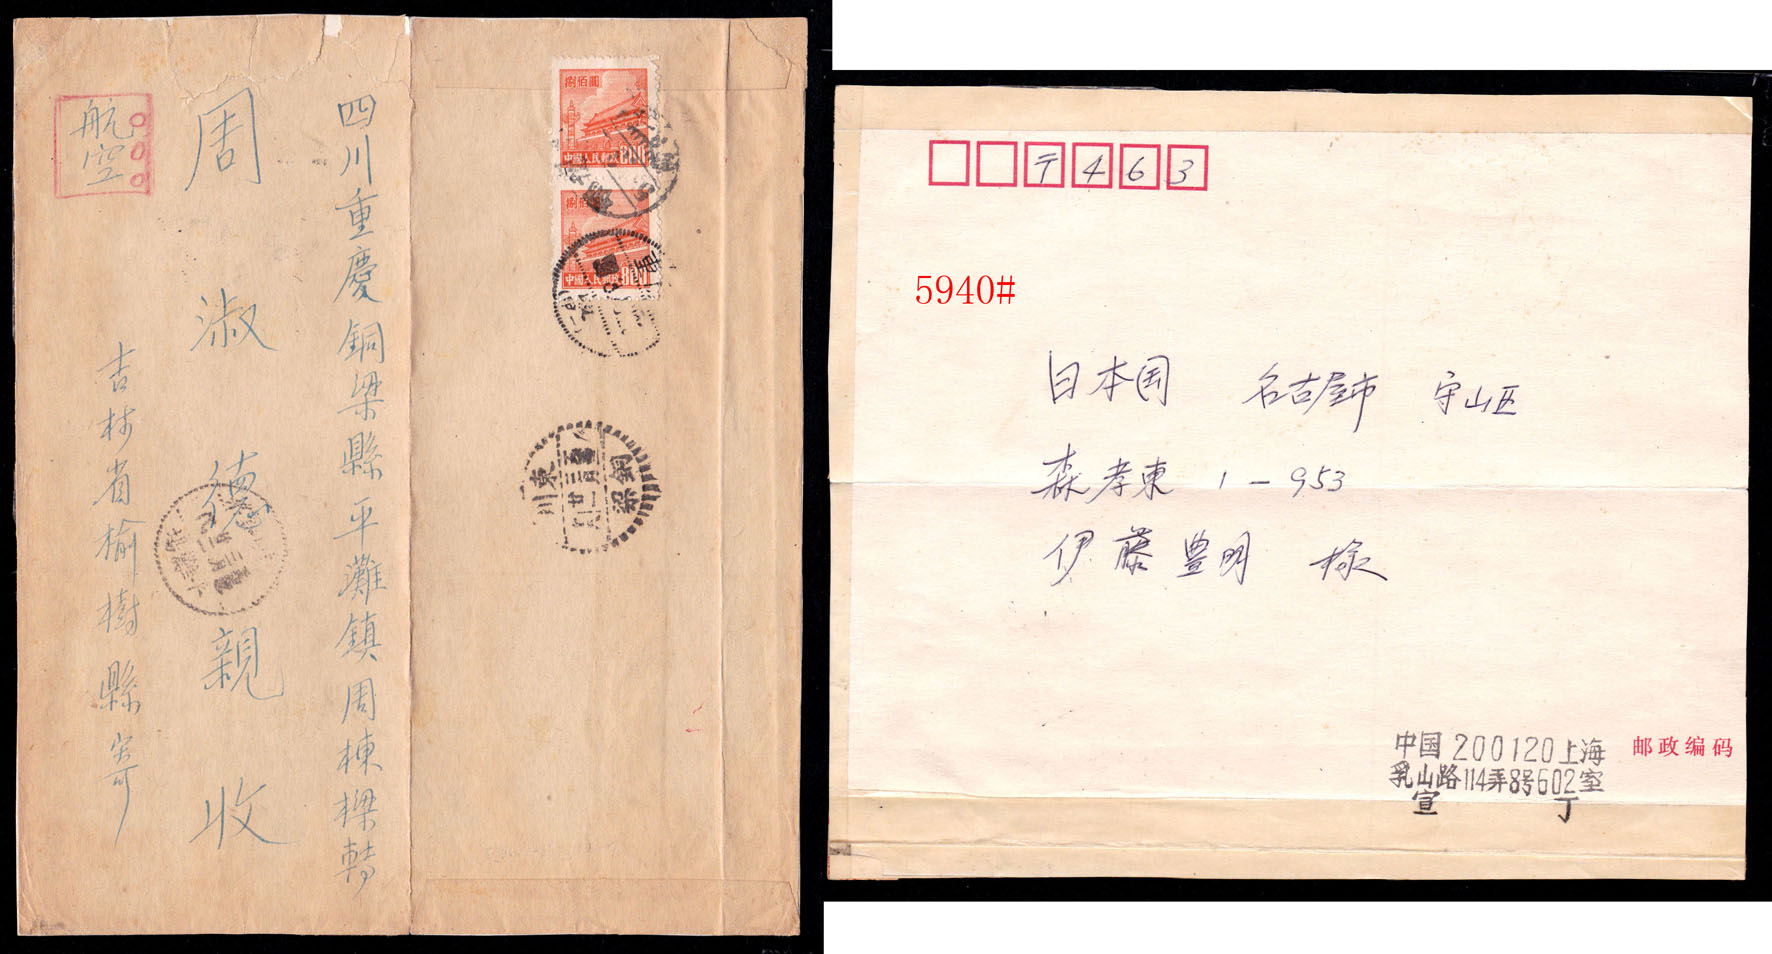 四川重慶銅梁縣平灘鎮周棟樑轉
周淑德親收
吉林省榆樹縣寄
航空
捌佰圓
中國人民郵政800
捌佰圓
中國人民郵政800
銅梁
東川
〒463
5940#
日本国 名古屋市 守山区
森孝東 1-953
伊藤豊明 様
中国200120上海
乳山路114弄8号602室
宣丁
邮政编码